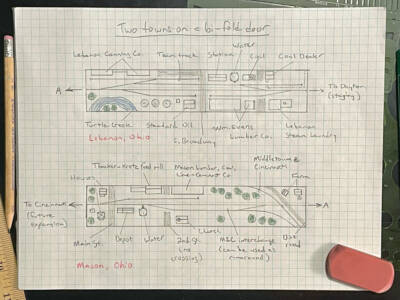 Two towns on a bi-fold door
Water
Lebanon Canning Co.
Team track
Station
Coal
Coal Dealer
A
To Dayton
(staging)
Turtle Creek
Standard Oil
Wm. Evans
Lumber Co.
Lebanon
Steam Laundry
S. Broadway
Lebanon, Ohio
Middletown &
Cincinnati
Mason Lumber, Coal,
Lime + Cement Co
Farm
Houses
feed mill
To Cincinnati
(future
expansion)
A
Main St.
Depot
Water
2nd St.
(no
crossing)
Church
M&C interchange
(can be used as
runaround)
Dirt
road
Mason, Ohio